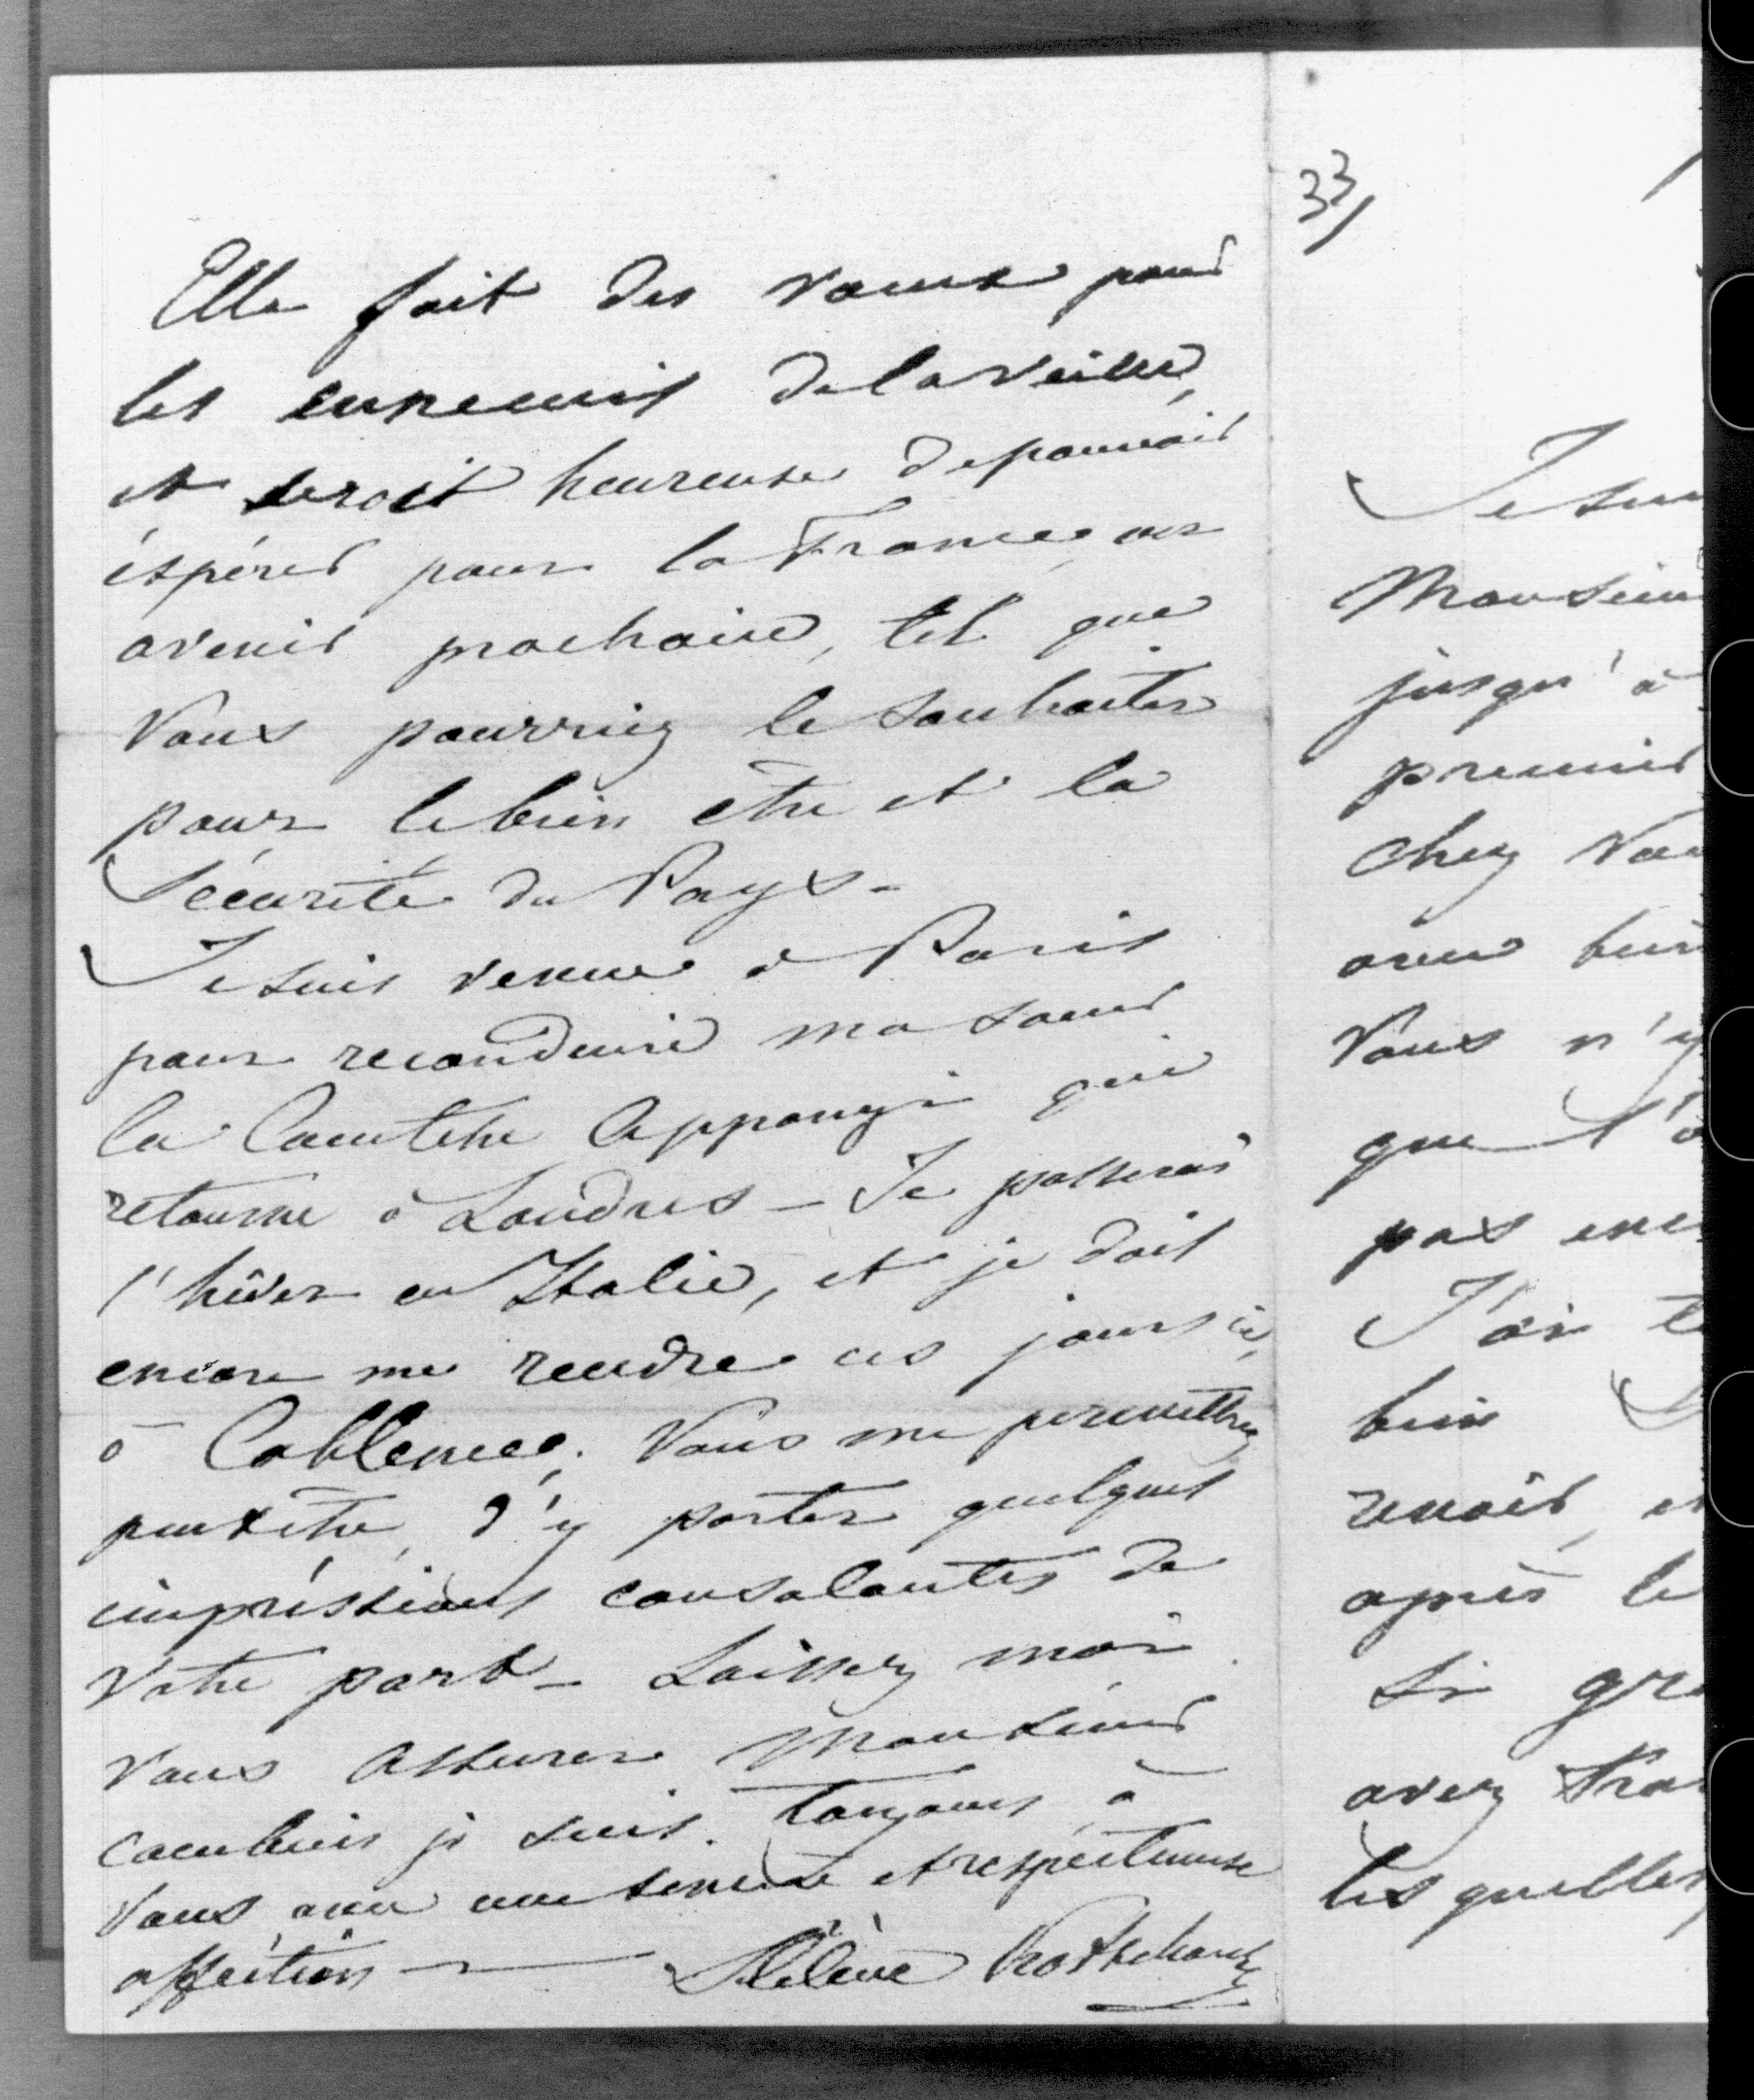 Elle fait des vœux pour
les ennemis de la veille,
et seroit heureuse de pouvoir
éspérer pour la France, un
avenir prochain, tel que
Vous pourriez le souhaiter
pour le bien être et la
Sécurité du Pays -
Je suis venue à Paris
pour reconduire ma sœur
la Comtesse Apponyi qui
retourne à Londres - Je passerai
l'hîver en Italie, et je dois
encore me rendre ces jours ci,
à Coblence. Vous me permettrez
peut être, d'y porter quelques
impréssions consolantes de
Votre part - Laissez moi
Vous assurer Monsieur
combien je suis toujours à
Vous avec une sincère et respéctueuse
afféction — Hélène
33,
Je suis
Monsieur
jusqu'à
premier
chez Vous
avec bien
Vous n'y
que l'
pas enc
J'ai
bien
revoir, et
après le
si gr
avez
les quelles